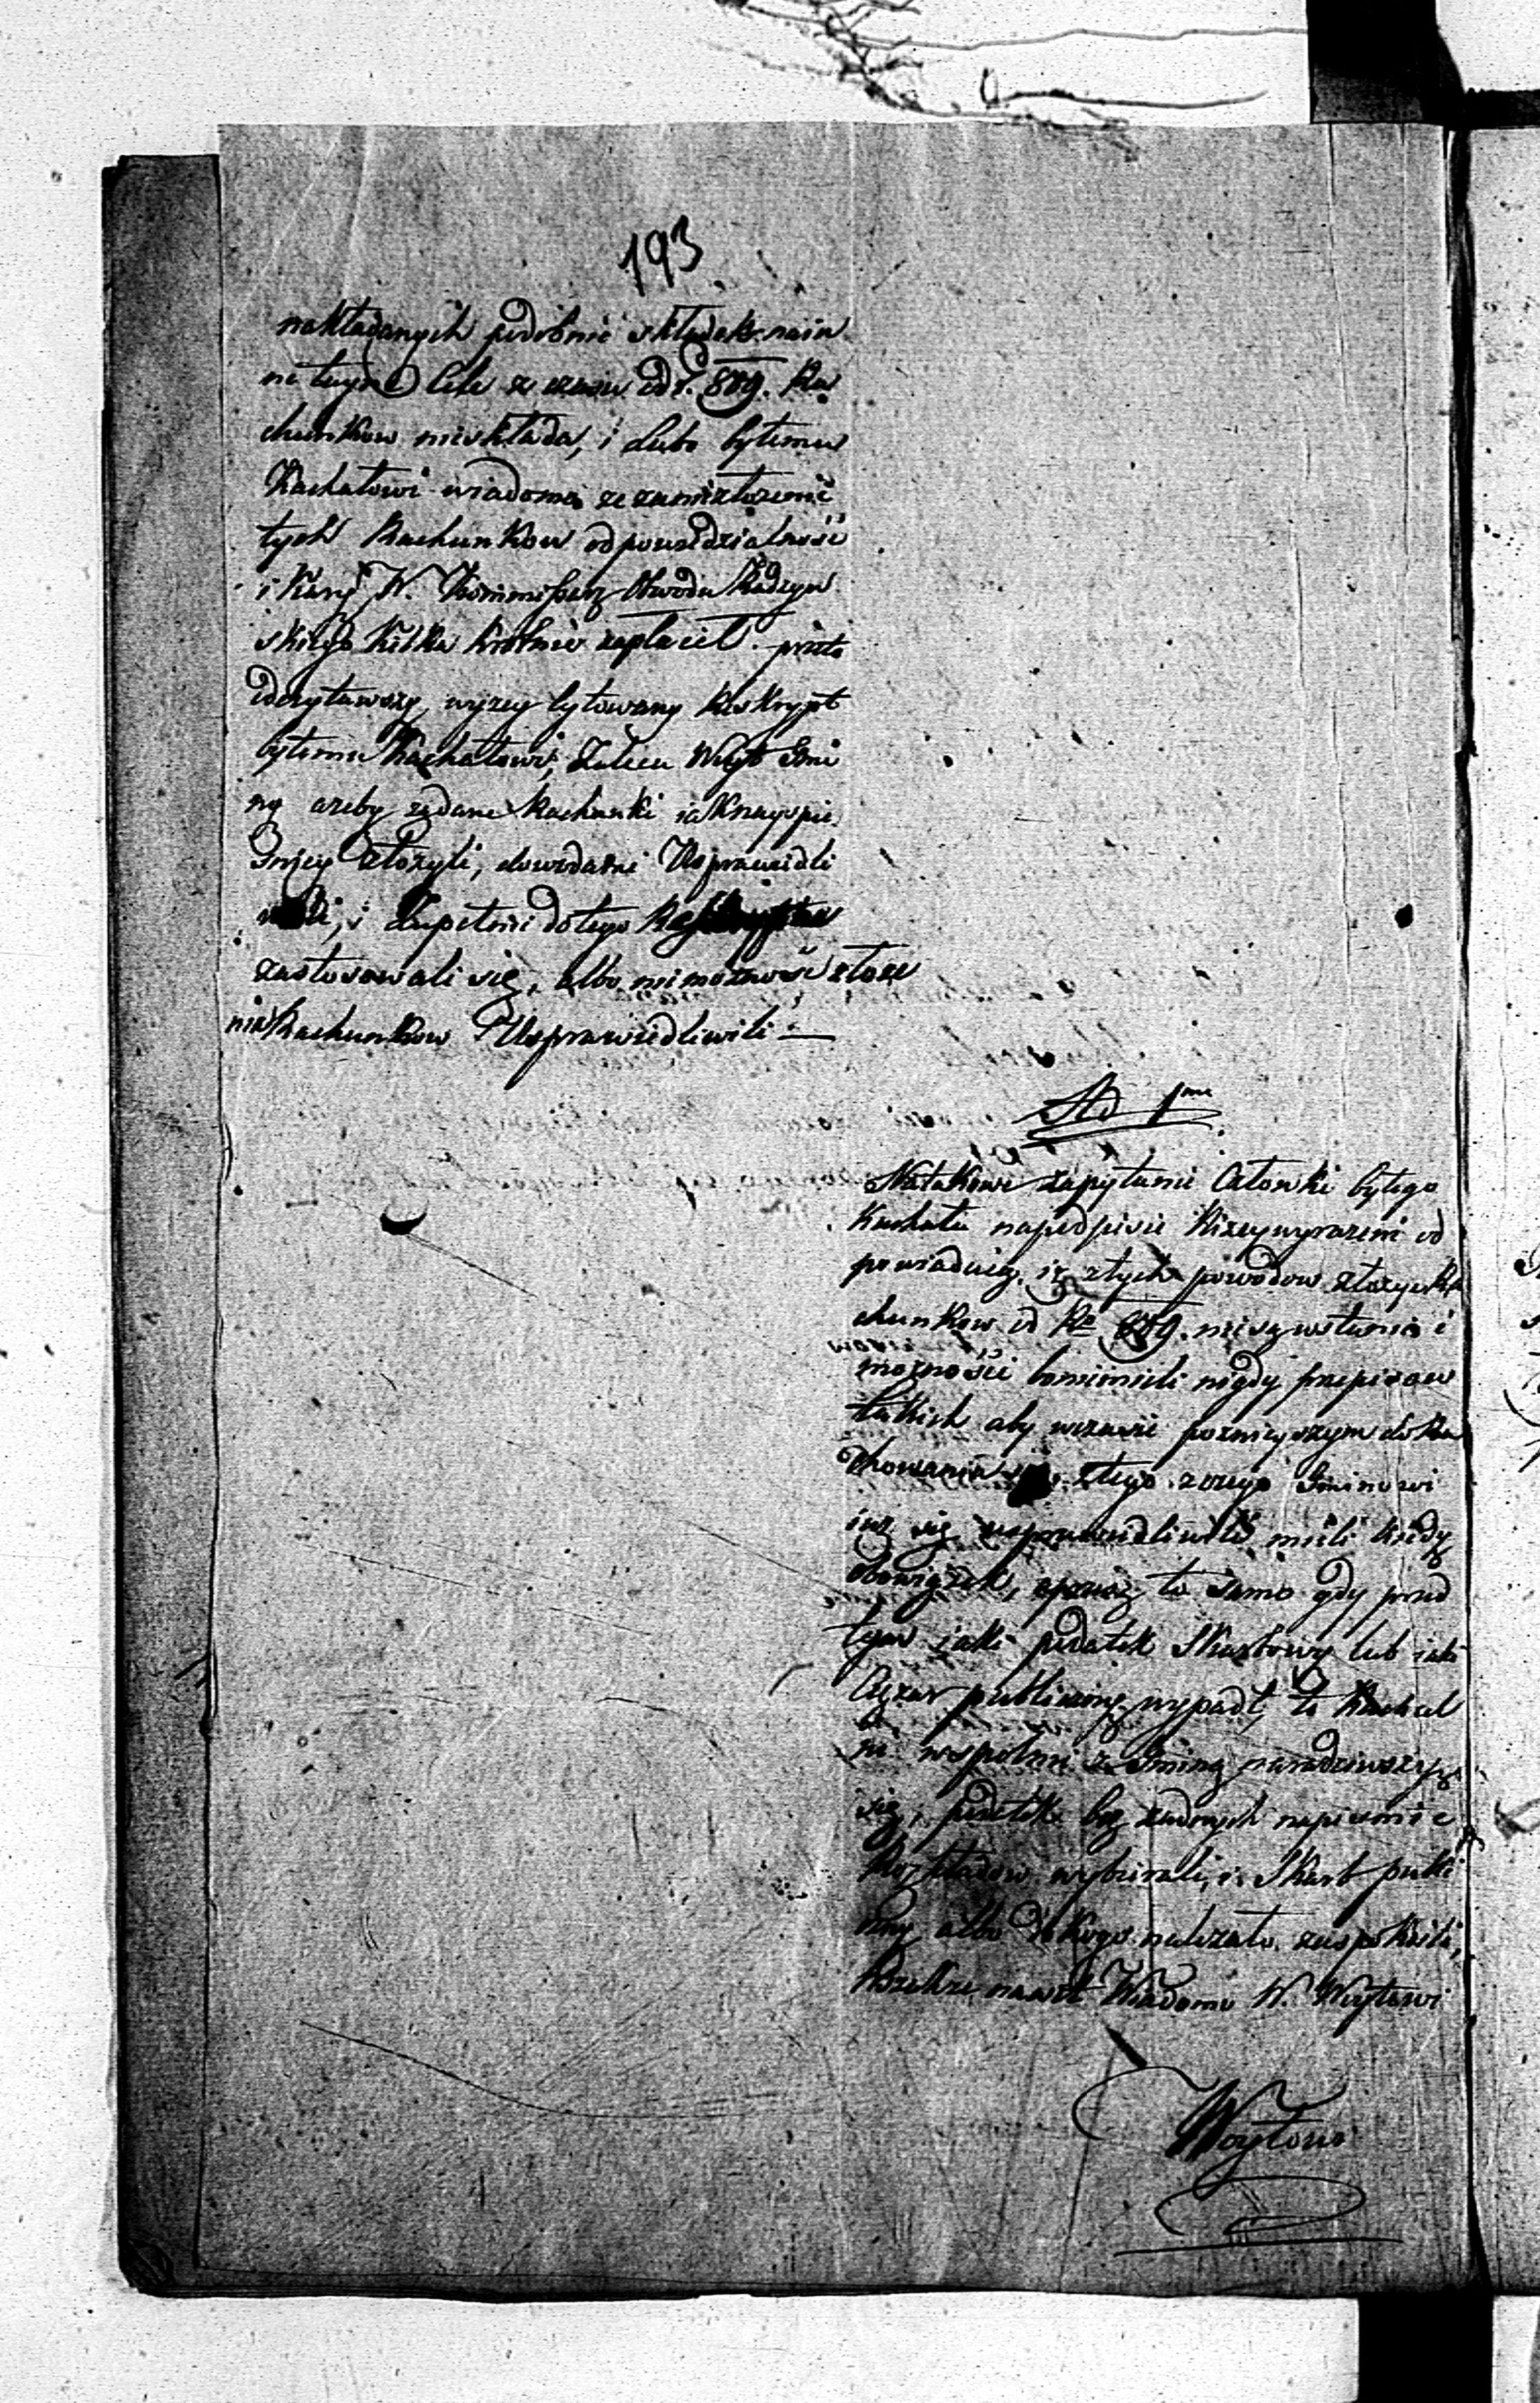 193
nakładanych podobnie składek na in
ne tuyne Cele z czasu od r. 809. Ra
chunkow nieskłada, i Lubo byłemu
Kachałowi wiadomo że za niezłożenie
tych Rachunkow odpowiedzialność
i Karę W. Kommissarz Obwodu Radzyń
skiego Kilka krotnie zapłacił. przeto
odczytawszy wyżey Cytowany Reskrypt
byłemu Kachałowi, Zaleca Woyt Gmi
ny ażeby żądane Rachunki iak nayspie
szniey złożyli, dowodami Usprawiedli
wili, i Zupełnie do tego
zastosowali się, albo niemożność złoże
nia Rachunkow Usprawiedliwili —
Ad 1me
Na takowe zapytanie Członki byłego
Kachału na podpisie Niżey wyrażeni od
powiadaią, iż z tych powodow złożyć Ra
chunkow od Ro 809. nie są w stanie i
możności bo niemieli nigdy przepisow
takich aby w czasie poznieyszym do Ra
chowania się z tego z czego Gminowi
iuż się usprawiedliwili mieli kiedy
obowiązek, to samo gdy przed
tym iaki podatek Skarbowy lub iaki
Ciężar publiczny wypadł, to Kachal
ni wspolnie z Gminą naradziwszy
się, podatek bez żadnych na piśmie
Rozkładow wybierali, i Skarb publi
czny albo do kogo należało zaspokoili,
Wszakże nawet Wiadomo W. Woytowi
Woytowi